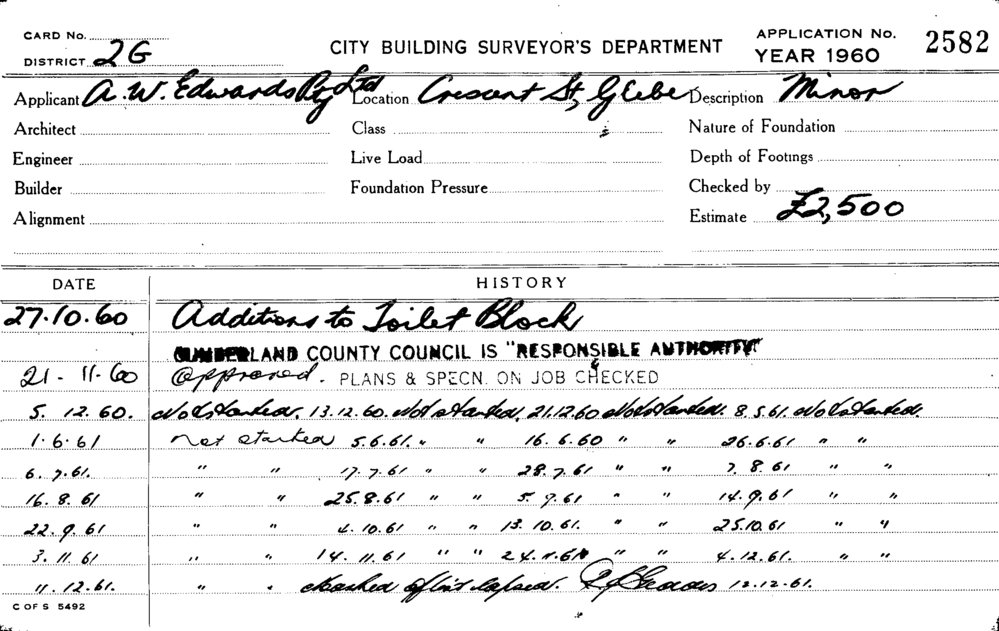 CARD No.
DISTRICT 2G
CITY BUILDING SURVEYOR'S DEPARTMENT
APPLICATION No. 2582
YEAR 1960
Applicant A. W. Edwards Pty Ltd Location Crescent St, Glebe Description Minor
Architect Class Nature of Foundation
Engineer Live Load Depth of Footings
Builder Foundation Pressure Checked by
Alignment Estimate £2,500
DATE HISTORY
27.10.60 Additions to Toilet Block
CUMBERLAND COUNTY COUNCIL IS "RESPONSIBLE AUTHORITY"
21-11-60 Approved. PLANS & SPECN. ON JOB CHECKED
5. 12. 60. Not started. 13.12.60. Not started. 21.12.60 Not started. 8.5.61. Not started
1.6.61 Not started 5.6.61. " " 16.6.60 " " 26.6.61 " "
6.7.61. " " 17.7.61 " " 28.7.61 " " 7.8.61 " "
16.8.61 " " 25.8.61 " " 5.9.61 " " 14.9.61 " "
22.9.61 " " 4.10.61 " " 13.10.61. " " 25.10.61 " "
3.11.61 " " 14.11.61 " " 24.11.61 " " 4.12.61. " "
11.12.61. " " lapsed. 12.12.61.
C OF S 5492